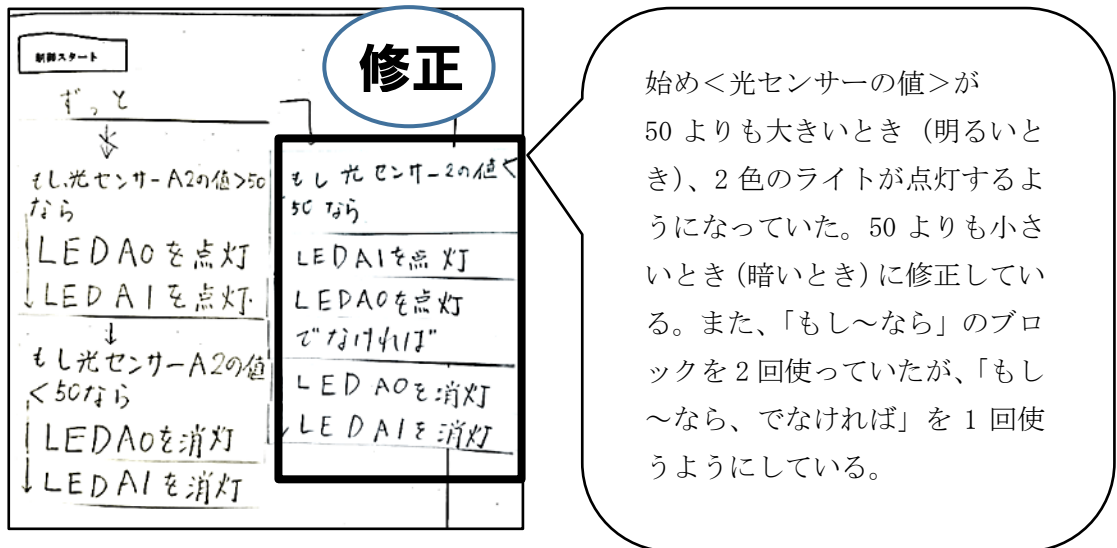 制御スタート
ずっと
もし光センサーA2の値>50
なら
LEDA0を点灯
LEDA1を点灯
もし光センサーA2の値
<50なら
LEDA0を消灯
LEDA1を消灯
修正
もし光センサー2の値<
50なら
LEDA1を点灯
LEDA0を点灯
でなければ
LEDA0を消灯
LEDA1を消灯
始め<光センサーの値>が
50 よりも大きいとき（明るいと
き）、2 色のライトが点灯するよ
うになっていた。50 よりも小さ
いとき（暗いとき）に修正してい
る。また、「もし～なら」のブロ
ックを 2 回使っていたが、「もし
～なら、でなければ」を 1 回使
うようにしている。